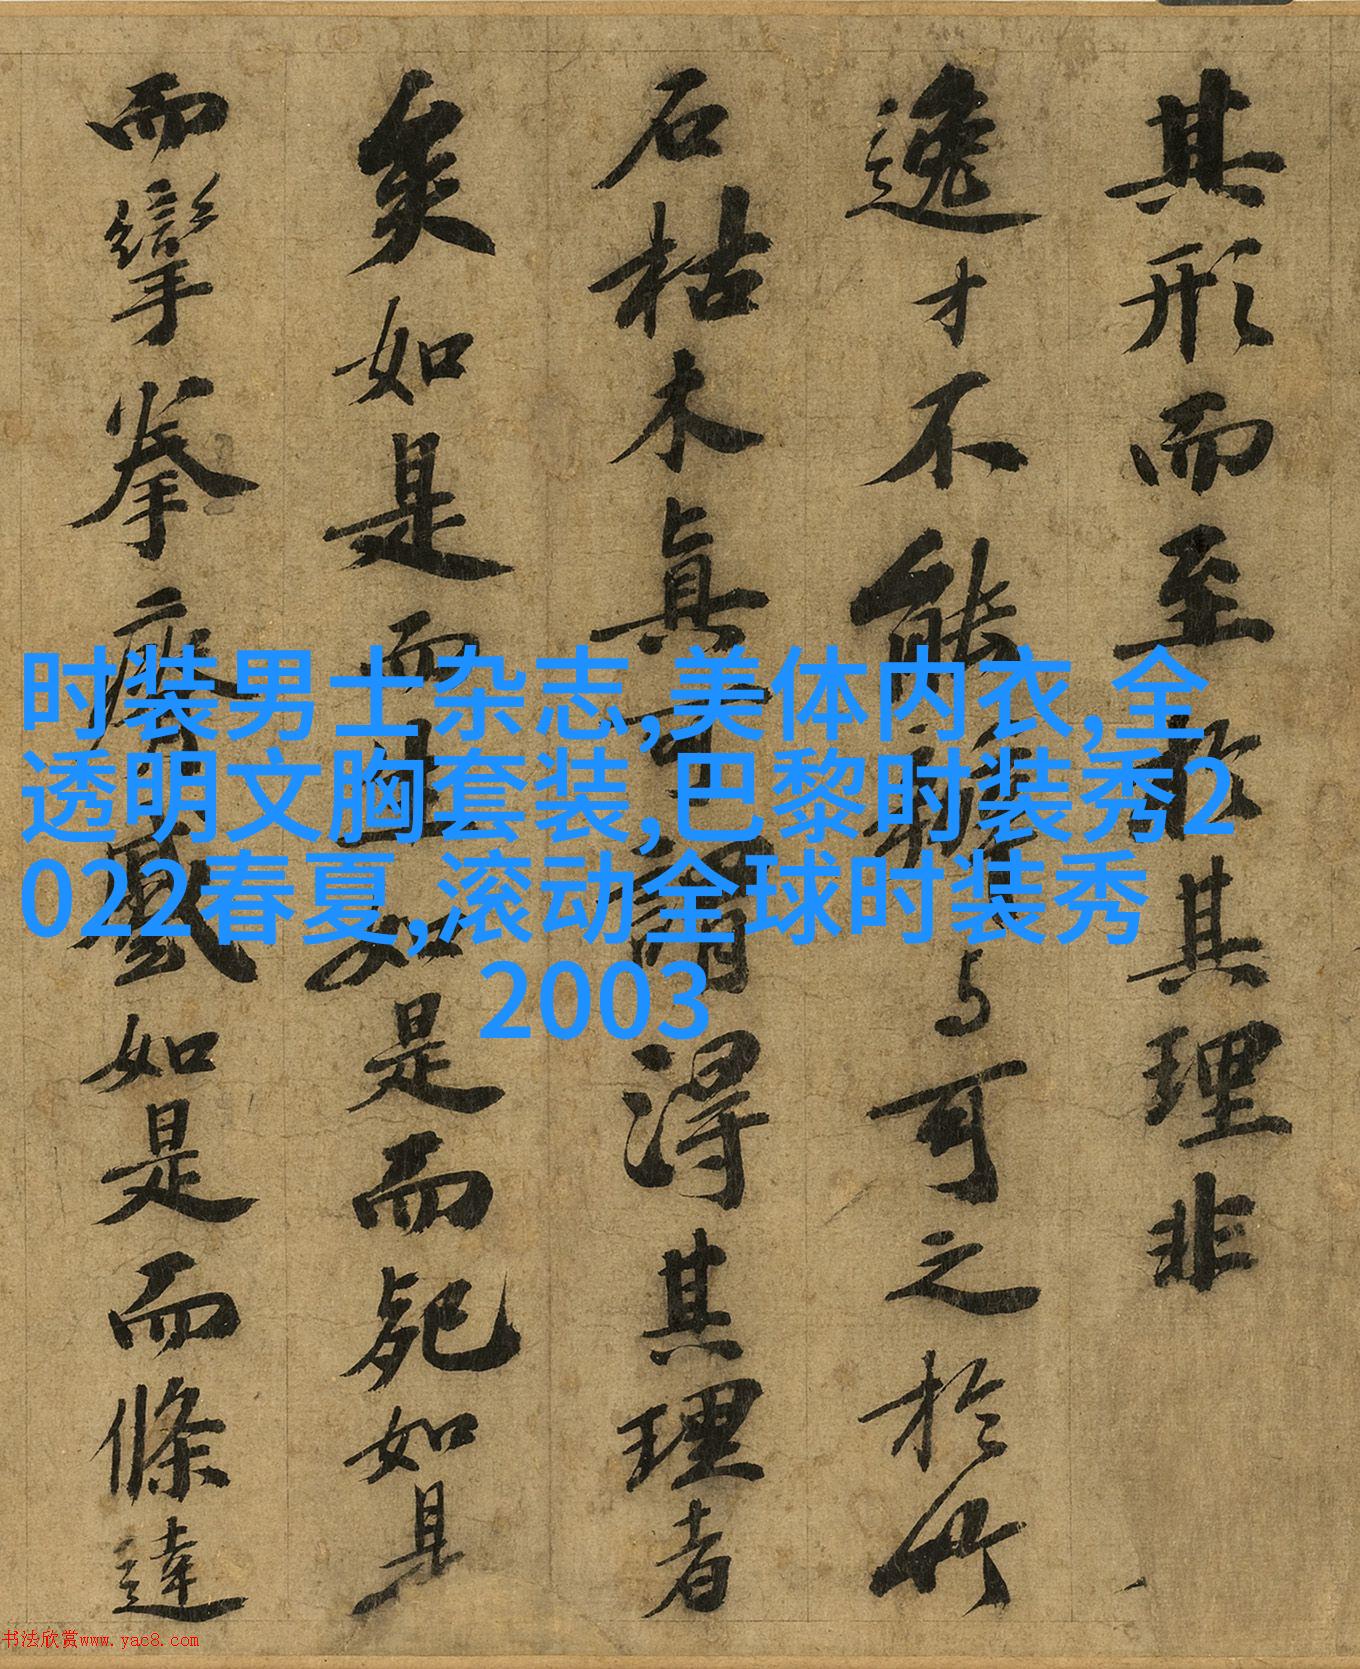 其形而至於其理非
逸才不能辨与可之於竹
石枯木真可謂得其理者
矣如是而生如是而死如是
而攣拳瘠蹙如是而條達
时装男士杂志,美体内衣,全
透明文胸套装,巴黎时装秀2
022春夏,滚动全球时装秀
2003
书法欣赏www.yac8.com